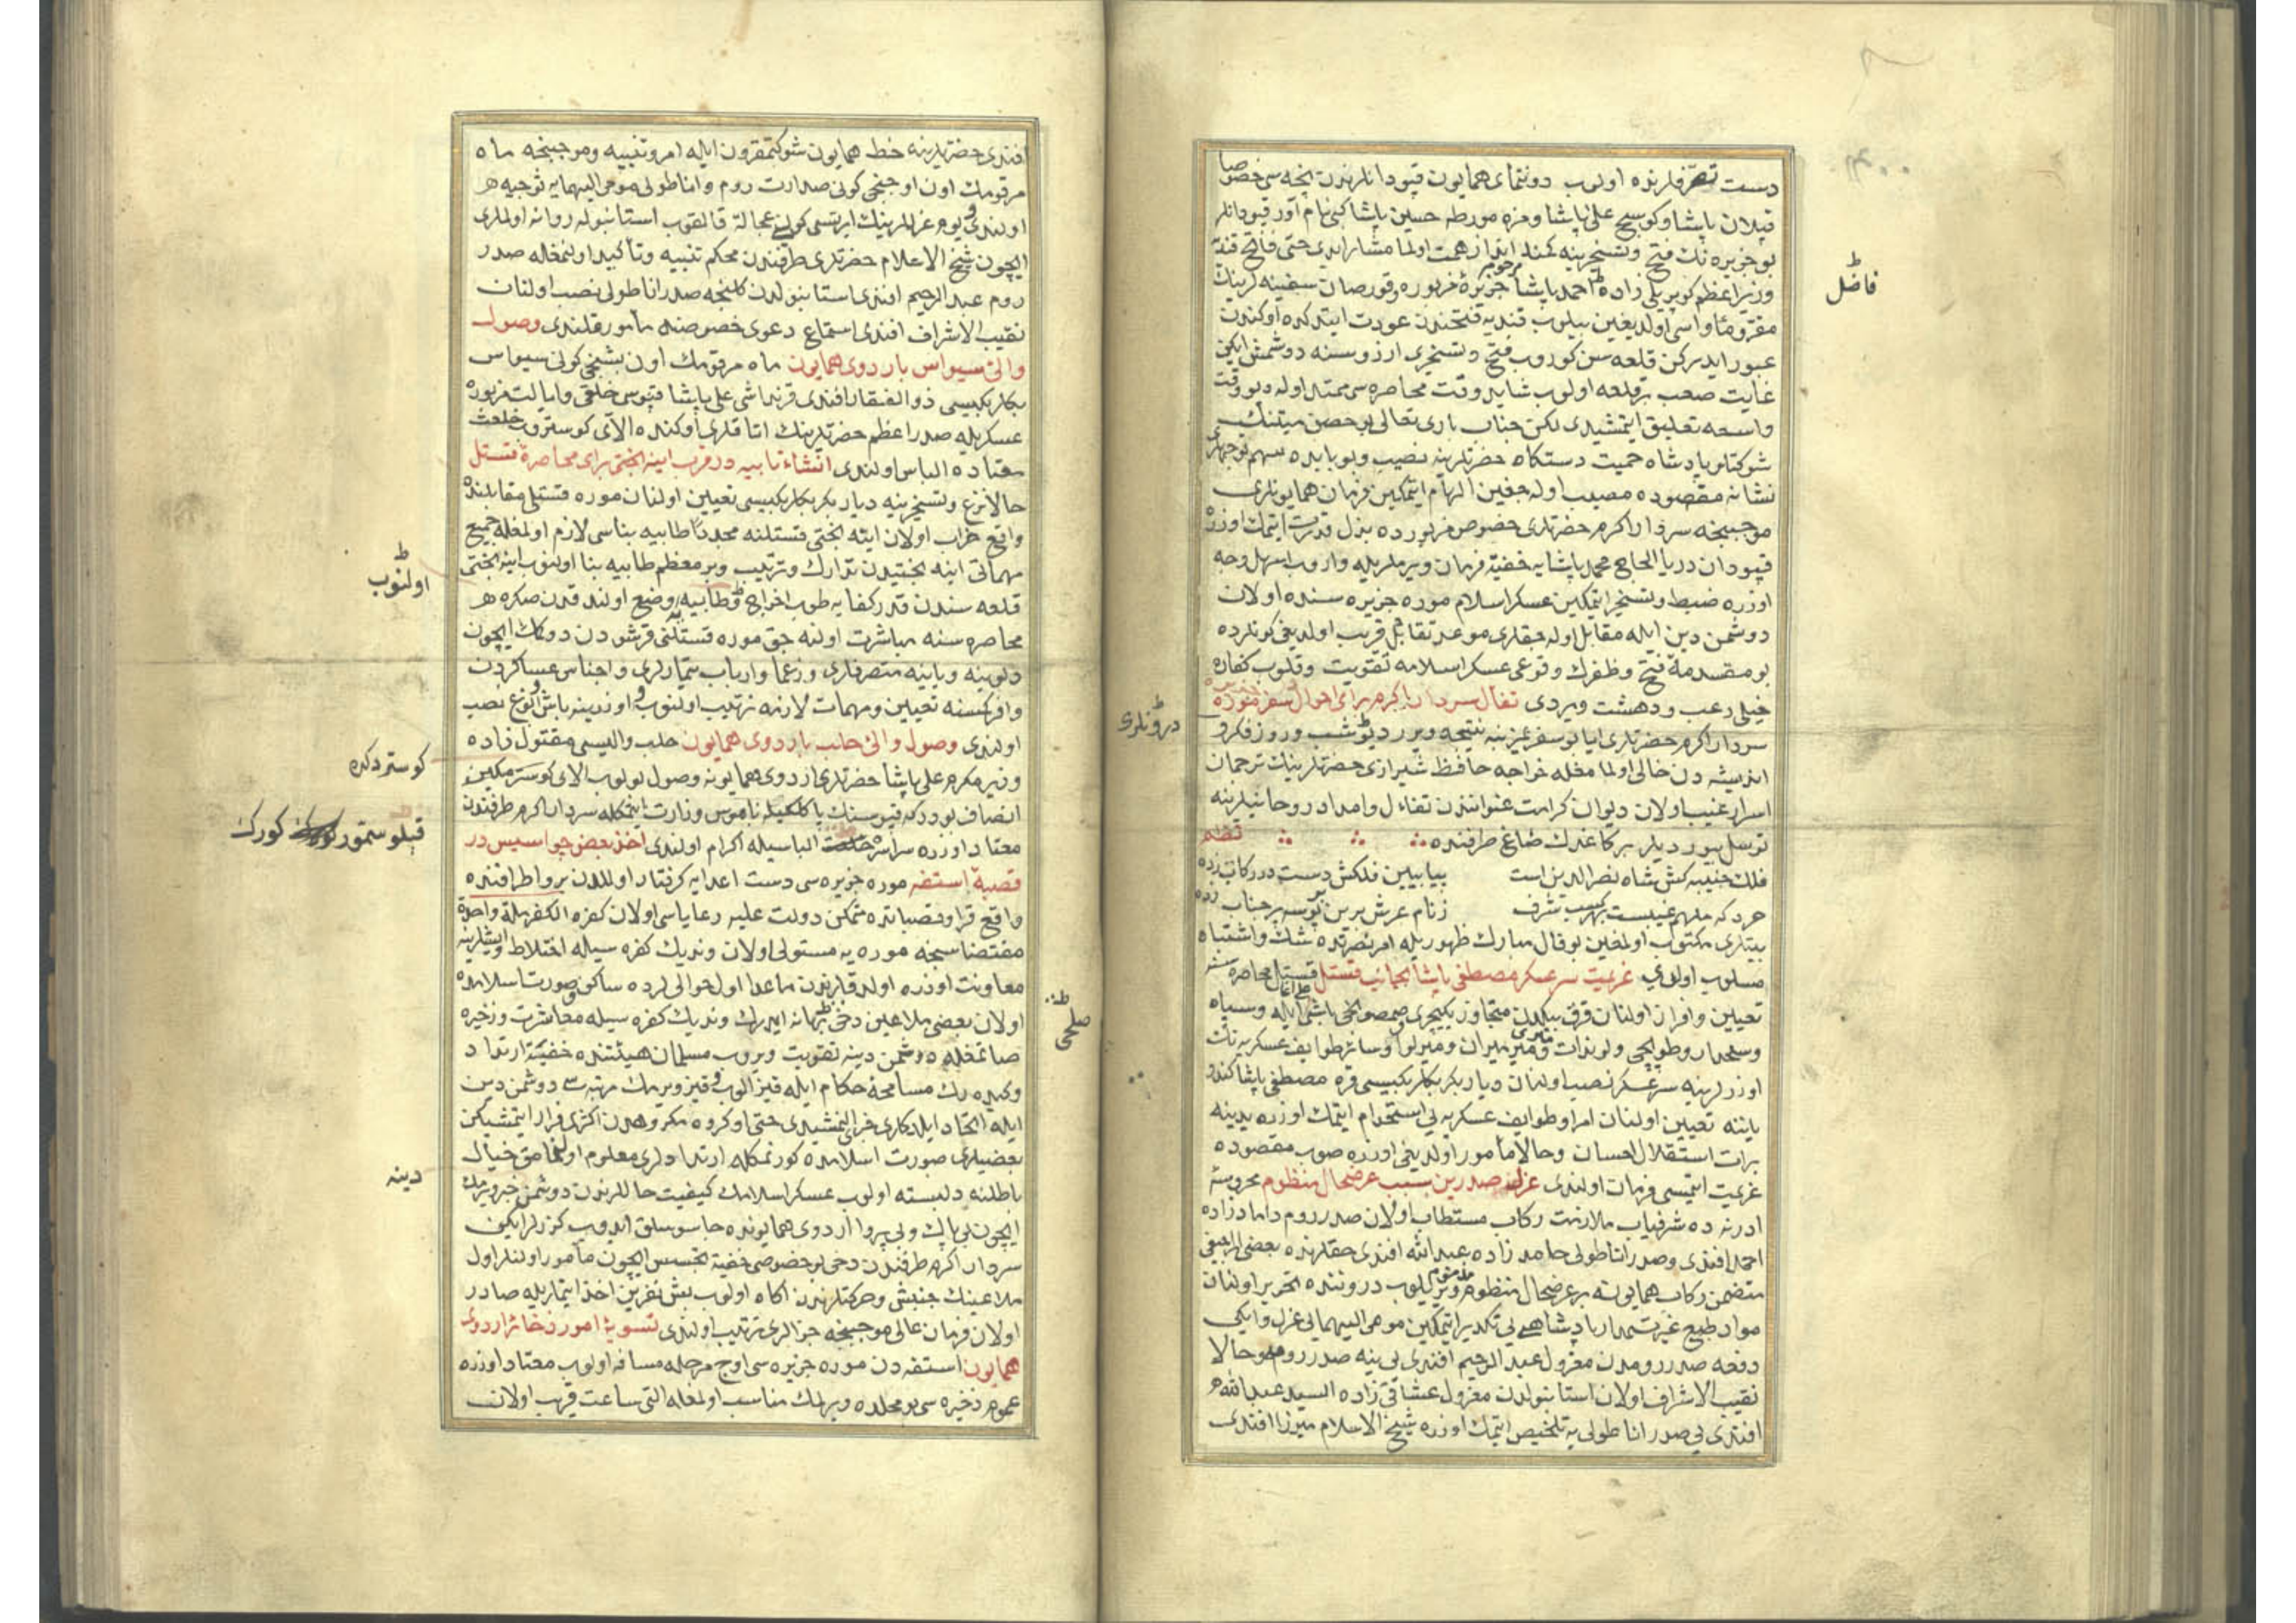 دست تصرفلرنده اولوب دوننمای همایون قپودانلرندن نیجه سی خصوصا
قپلان پاشا و کوسج علی پاشا و مزه مورطه حسین پاشا کبی نام آور قپودانلر
بو جزیره نك فتح و تسخیرینه کمند انداز همت اولمامشلر ایدی حتی فاتح قندیه
وزیر اعظم کوپریلی زاده احمد پاشا مرحوم جزیرۀ مزبوره قورصان سفینه لرینك
مقر و مأواسی اولدیغین بیلوب قندیه فتحندن عودت ایتدکده اوکندن
عبور ایدرکن قلعه سن کوروب فتح و تسخیری ارزوسنه دوشمش ایکن
غایت صعب بر قلعه اولوب شاید وقت محاصره سی ممتد اوله دیو وقت
واسعه تعلیق ایتمشیدی لکن جناب باری تعالی بو حصن متینك
شوکتلو پادشاه حمیت دستکاه حضرتلرینه نصیب و بو بابده سهم توجهلری
نشانه مقصوده مصیب اوله جغین الهام ایتمکین فرمان همایونلری
موجبنجه سردار اکرم حضرتلری خصوص مزبورده بذل قدرت ایتمك اوزره
قپودان دریا الحاج محمد پاشایه خفیة فرمان ویرملریله واروب اسهل وجه
اوزره ضبط و تسخیر ایتمکین عسکر اسلام موره جزیره سنده اولان
دوشمن دین ایله مقابل اوله جقلری موعد تقابل قریب اولدیغی کونلرده
بو مقدمۀ فتح و ظفرك وقوعی عسکر اسلامه تقویت و قلوب کفاره
خیلی رعب و دهشت ویردی تفأل سردار اکرم برای احوال سفر موره
سردار اکرم حضرتلری ایا بو سفر عزتمنه نتیجه ویرر دیو شب و روز فکر و
اندیشه دن خالی اولمامغله خواجه حافظ شیرازی حضرتلرینك ترجمان
اسرار غیب اولان دیوان کرامت عنوانندن تفاءل و امداد روحانیلرینه
توسل بیوردیلر بر کاغدك صاغ طرفنده نظم
فلك جنیبه کش شاه نصر الدین است بیا ببین فلکش دست در رکاب زده
خرد که ملهم غیبست بهر کسب شرف ز نام عرش برین بوسه بر جناب زده
بیتلری مکتوب اولمغین بو فال مبارك ظهوریله امر نصرتده شك و اشتباه
مسلوب اولدی عزیمت سرعسکر مصطفی پاشا بجانب قستل قستل محاصره سنه
تعیین و افراز اولنان قرق بیکدن متجاوز یکیچری صمصونجی باشی ایله و سپاه
و سلحدار و طوپجی و لوندات و میرمیران و میرلوا و سائر طوایف عسکریه نك
اوزرلرینه سرعسکر نصب اولنان دیاربکر بکلربکیسی قره مصطفی پاشا کندو
یاننه تعیین اولنان امرا و طوایف عسکریه یی استخدام ایتمك اوزره یدینه
برات استقلال احسان و حالا مأمور اولدیغی اوزره صوب مقصوده
عزیمت ایتمسی فرمان اولندی عزل صدرین بسبب عرضحال منظوم محروسۀ
ادرنه ده شرفیاب ملازمت رکاب مستطاب اولان صدر روم دامادزاده
احمد افندی و صدر اناطولی حامد زاده عبد الله افندی حقلرنده بعض اراجیفی
متضمن رکاب همایونه بر عرضحال منظوم ویریلوب دروننده تحریر اولنان
مواد طبع غیرتمدار پادشاهی یی تکدیر ایتمکین مومی الیهمایی عزل و ایکی
دفعه صدر رومدن معزول عبد الرحیم افندی یی ینه صدر روم و حالا
نقیب الاشراف اولان استانبولدن معزول عشاقی زاده السید عبد الله
افندی یی صدر اناطولی یه تلخیص ایتمك اوزره شیخ الاسلام میرزا افندی
فاضل
درونلری
افندی حضرتلرینه خط همایون شوکتمقرون ایله امر و تنبیه و موجبنجه ماه
مرقومك اون اوچنجی کونی صدارت روم و اناطولی مومی الیهمایه توجیه
اولندی و یوم عزللرینك ایرتسی کونی عجالة قالقوب استانبوله روانه اولملری
ایچون شیخ الاعلام حضرتلری طرفندن محکم تنبیه و تأکید اولنمغله صدر
روم عبد الرحیم افندی استانبولدن کلنجه صدر اناطولی نصب اولنان
نقیب الاشراف افندی استماع دعوی خصوصنه مأمور قلندی وصول
والئ سیواس باردوی همایون ماه مرقومك اون بشنجی کونی سیواس
بکلربکیسی ذوالفقار افندی قرنداشی علی پاشا قپوسی خلقی و ایالت مزبوره
عسکریله صدر اعظم حضرتلرینك اتاقلری اوکنده الای کوستروب خلعت
معتاده الباس اولندی انشاء تابیه در قرب اینه بختی برای محاصرۀ قستل
حالا نزع و تسخیرینه دیاربکر بکلربکیسی تعیین اولنان موره قستلی مقابلنده
واقع خراب اولان اینه بختی قستلنه مجددا طابیه بناسی لازم اولمغله جمیع
مهماتی اینه بختیدن تدارك و ترتیب و بر معظم طابیه بنا اولنوب اینه بختی
قلعه سندن قدر کفایه طوب اخراج و طابیه یه وضع اولندقدن صکره
محاصره سنه مباشرت اولنه جق موره قستلنی قرشودن دوکمك ایچون
دلوینه و یانیه متصرفلری و زعما و ارباب تیمارلری و اجناس عساکردن
وافر کمسنه تعیین و مهمات لازمه ترتیب اولنوب و اوزرینه باش و بوغ نصب
اولندی وصول والئ حلب باردوی همایون حلب والیسی مقتول زاده
وزیر مکرم علی پاشا حضرتلری اردوی همایونه وصول بولوب الای کوسترمکین
انصاف بودر که قپوسنك پاکلکیله ناموس وزارت ایتمکله سردار اکرم طرفندن
معتاد اوزره سراسره خلعت الباسیله اکرام اولندی اخذ بعض جواسیس در
قصبۀ استفه موره جزیره سی دست اعدایه کرفتار اوللدن برو اطرافنده
واقع قرا و قصباتده متمکن دولت علیه رعایاسی اولان کفره الکفر ملة واحدة
مقتضاسنجه موره یه مستولی اولان وندیك کفره سیله اختلاط و ایشلرینه
معاونت اوزره اولدقلرندن ماعدا اول حوالیلرده ساکن و صورت اسلامده
اولان بعض ملاعین دخی بر بهانه ایدرك وندیك کفره سیله معاشرت و ذخیره
صاتمغله دوشمن دینه تقویت ویروب مسلمان هیئتنده خفیة ارتداد
و کیده رك مسامحۀ حکام ایله قیز الوب و قیز ویرمك مرتبه سی دوشمن دین
ایله اتحاد ایله کاری خرابی ایتمشیدی حتی او کروه مکروهدن اکثری فرار ایتمشیکن
بعضیلری صورت اسلامده کورنمکله ارتدادلری معلوم اولنمامق خیال
باطلنه دلبسته اولوب عسکر اسلامك کیفیت حاللرندن دوشمنه خبر ویرمك
ایچون بی باك و بی پروا اردوی همایونده جاسوسلق ایدوب کزرلر ایکن
سردار اکرم طرفندن دخی بو خصوصی خفیة تجسس ایچون مأمور اولنلر اول
ملاعینك جنبش و حرکتلرندن اکاه اولوب بش نفرین اخذ ایتملریله صادر
اولان فرمان عالی موجبنجه جزالری ترتیب اولندی تسویۀ امور ذخائر اردوی
همایون استفه دن موره جزیره سی اوچ مرحله مسافه اولوب معتاد اوزره
عموم ذخیره سی بو محلده ویرلمك مناسب اولمغله التی ساعت قریب اولان
اولنوب
کوستردکده
قپلو سمور کورك
صلحی
دینه